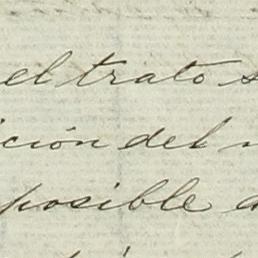 el trato s
ición del n
posible d